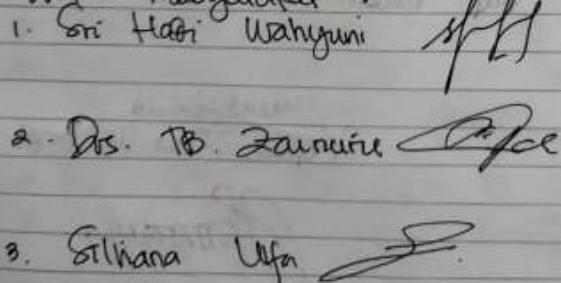 1. Sri Hari Wahyuni
2. Drs. TB. Zainurie
3. Silhana Ulfa